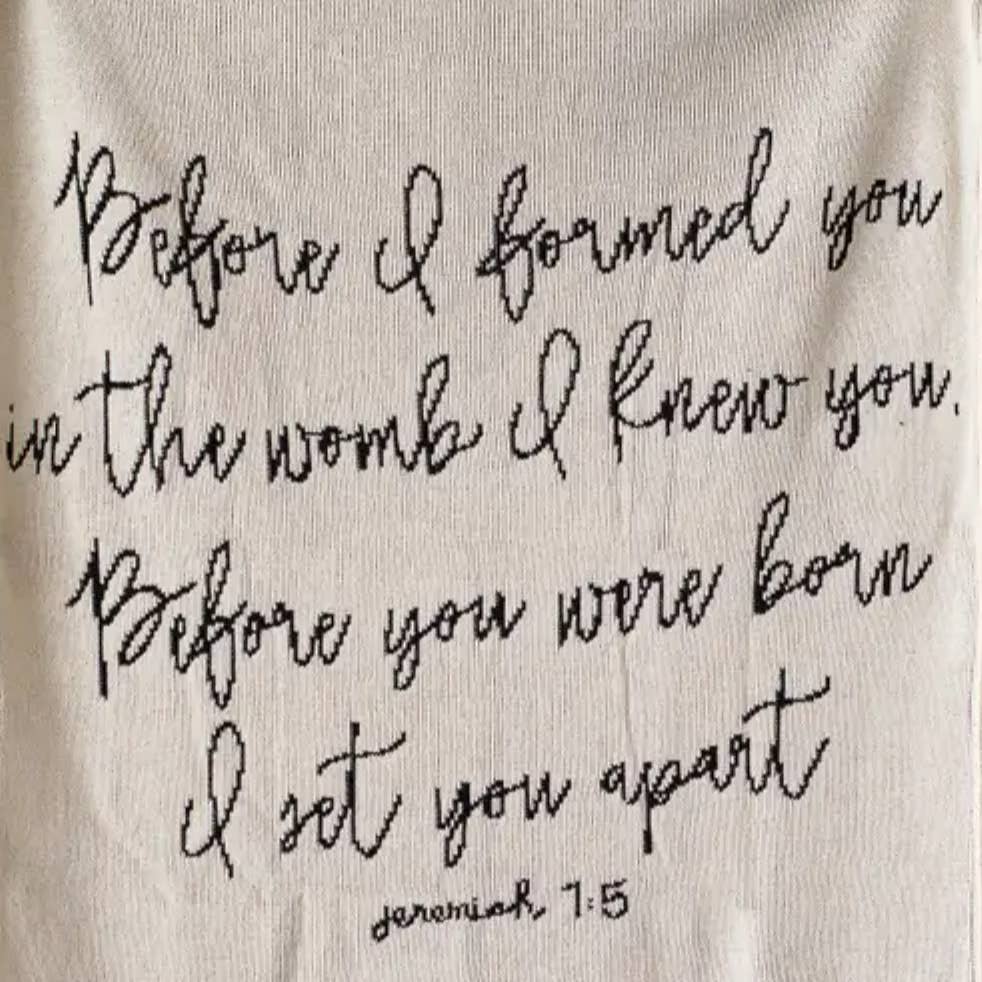 Before I formed you
in the womb I knew you.
Before you were born
I set you apart
jeremiah, 1:5